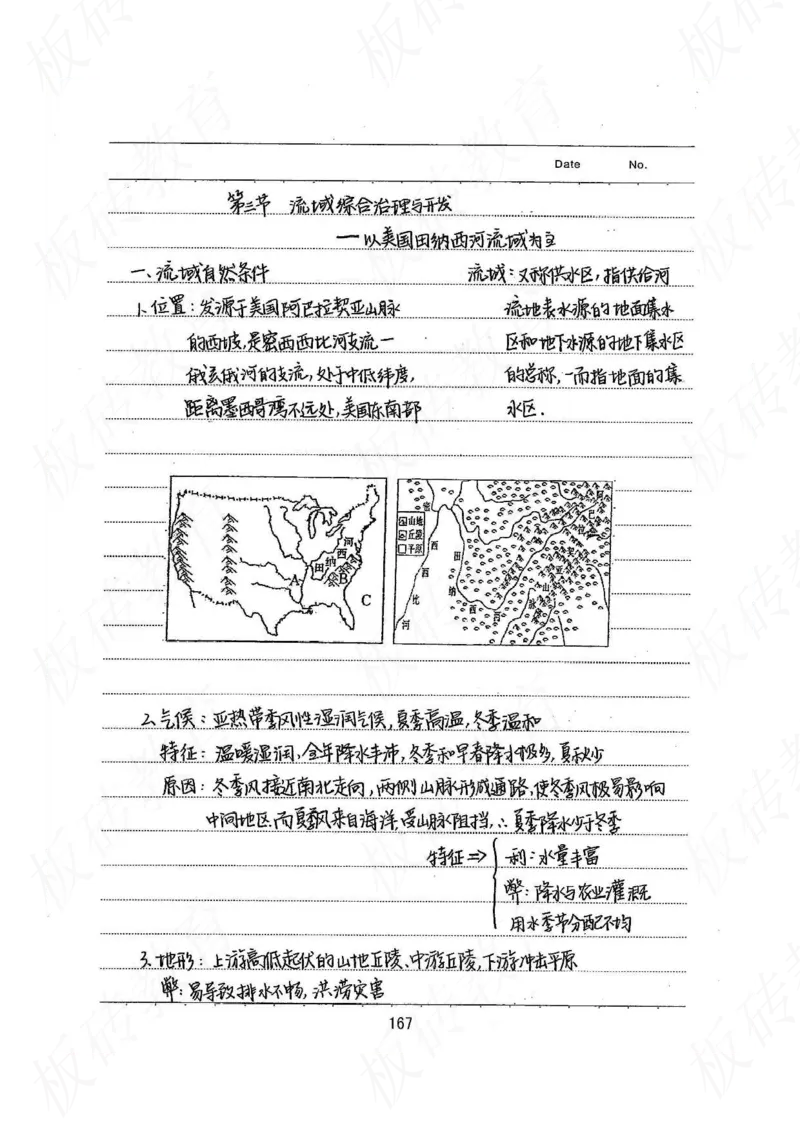 Date No.
第三节 流域综合治理与开发
——以美国田纳西河流域为主
一、流域自然条件
1、位置:发源于美国阿巴拉契亚山脉
的西坡,是密西西比河支流—
俄亥俄河的支流,处于中低纬度,
距离墨西哥湾不远处,美国东南部
流域:又称供水区,指供给河
流地表水源的地面集水
区和地下水源的地下集水区
的总称,一而指地面的集
水区.
田 纳 西 河
A
B
C
山地
丘陵
平原
密 西 西 比 河
田 纳 西 河
阿 巴 拉 契 亚 山 脉
2、气候:亚热带季风性湿润气候,夏季高温,冬季温和
特征:温暖湿润,全年降水丰沛,冬季和早春降水极多,夏秋少
原因:冬季风接近南北走向,两侧山脉形成通路,使冬季风极易影响
中间地区.而夏季风来自海洋,受山脉阻挡,∴夏季降水少于冬季
特征⇒ 利:水量丰富
弊:降水与农业灌溉
用水季节分配不均
3、地形:上游高低起伏的山地丘陵、中游丘陵,下游冲击平原
弊:易导致排水不畅,洪涝灾害
167
板砖教育